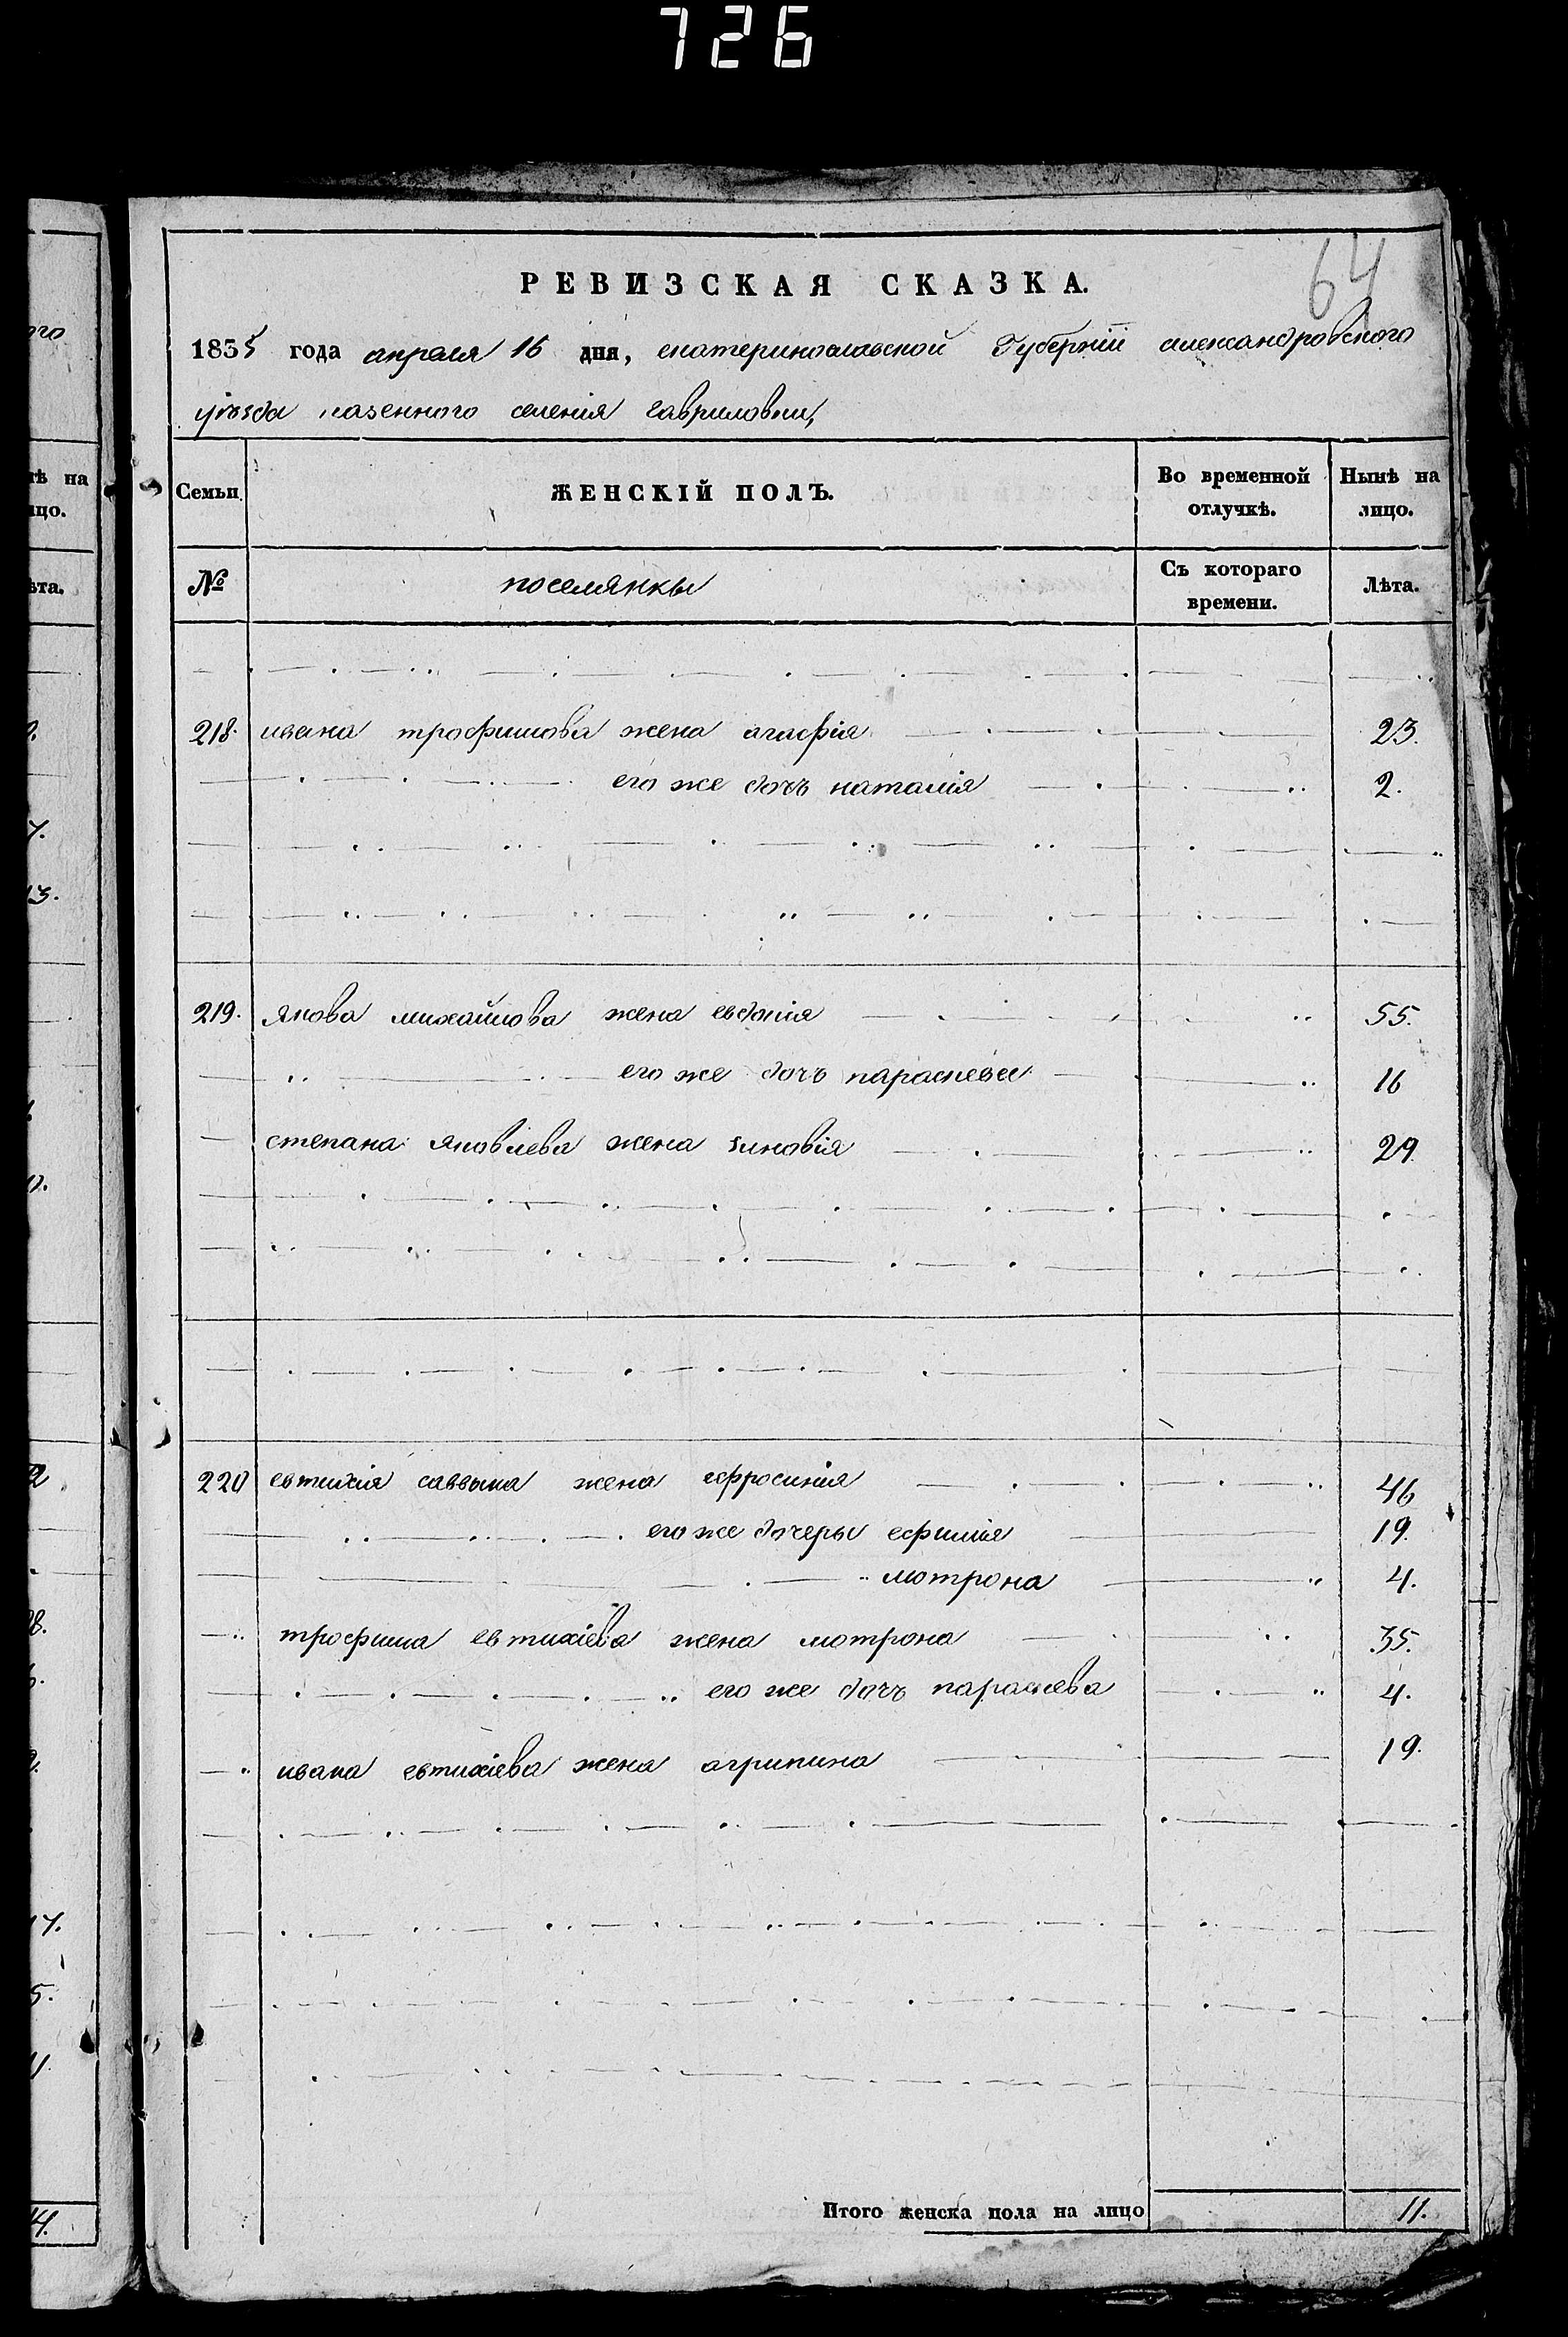 726
64
РЕВИЗСКАЯ СКАЗКА.
1835 года апреля 16 дня, екатеринославской Губерніи александровского
уѣзда казенного селенія гавриловки,
Семьи. ЖЕНСКІЙ ПОЛЪ. Во временной отлучкѣ. Нынѣ на лицо.
№ поселянкы Съ котораго времени. Лѣта.
218. ивана трофимова жена агафія 23.
его же дочь наталія 2.
219. якова михайлова жена евдокія 55.
его же дочь параскевея 16
степана яковлева жена зиновія 29
220 евтихія саввына жена ефросинія 46
его же дочеры ефимія 19.
мотрона 4.
трофима евтихіева жена мотрона 35.
его же дочь параскева 4.
ивана евтихіева жена агрипина 19.
Итого женска пола на лицо 11.